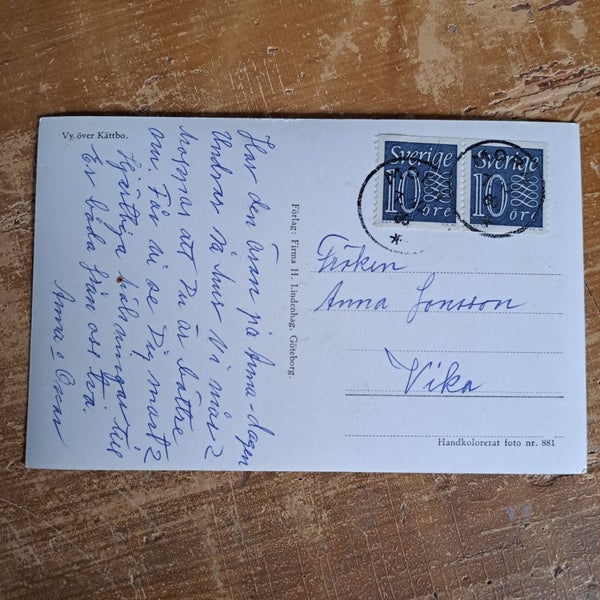 Vy över Kättbo.
Har den Äran på Anna dagen
Undras så hur ni mår?
hoppas att Du är bättre
nu. Får vi se Dig snart?
Hjärtliga hälsningar till
Er båda från oss två.
Anna o Oscar
Förlag: Firma H. Lindenhag, Göteborg.
Sverige
10
öre
Sverige
10
öre
Fröken
Anna Jonsson
Vika
Handkolorerat foto nr. 881